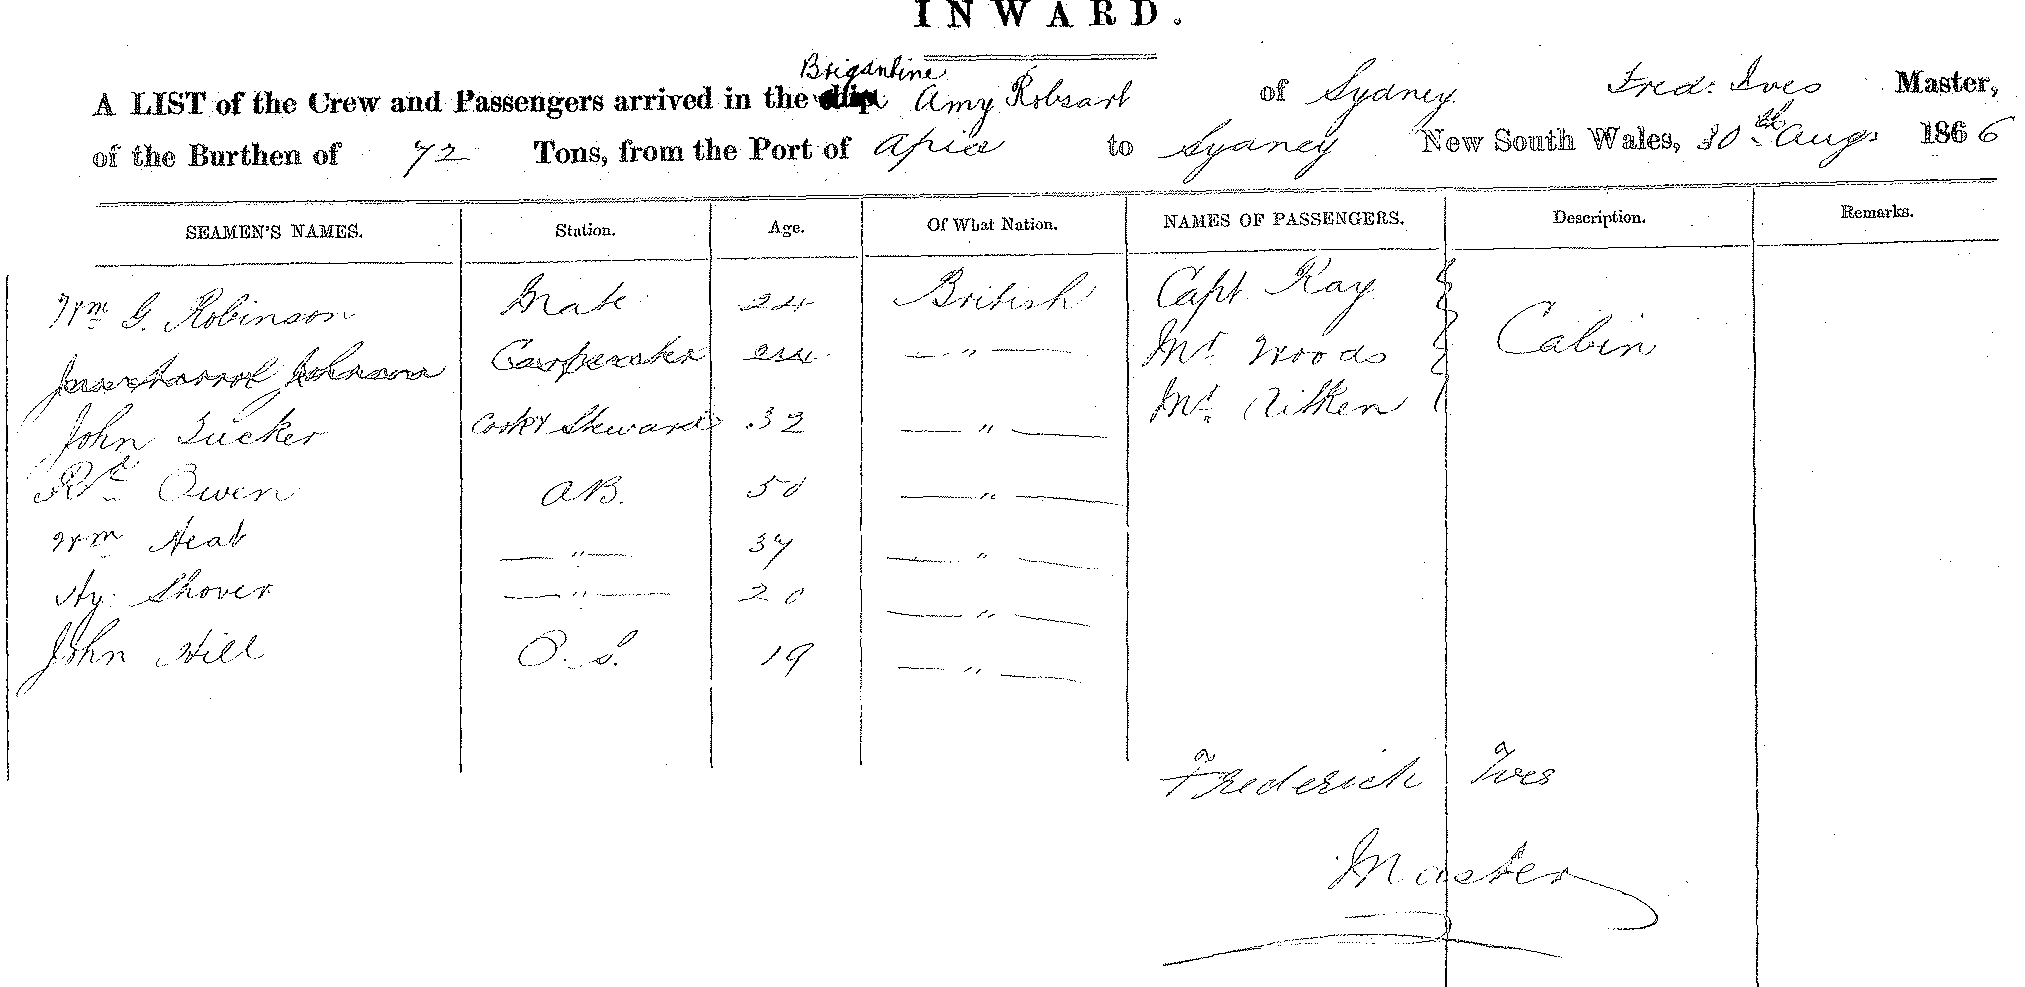 INWARD.
Brigantine
A LIST of the Crew and Passengers arrived in the Amy Robsart of Sydney Fred: Ives Master,
of the Burthen of 72 Tons, from the Port of Apia to Sydney New South Wales, 30th Augs 1866
SEAMEN'S NAMES. Station. Age. Of What Nation. NAMES OF PASSENGERS. Description. Remarks.
Wm G. Robinson Mate 24 British Capt Kay
Johnson Carpenter —"— Mr Woods Cabin
John Tucker Cook & Steward 32 —"— Mr Aitken
Rd Owen AB. 50 —"—
Wm Neat —"— 37 —"—
Hy. Shover —"— 20 —"—
John Hill O.S. 19 —"—
Frederick Ives
Master